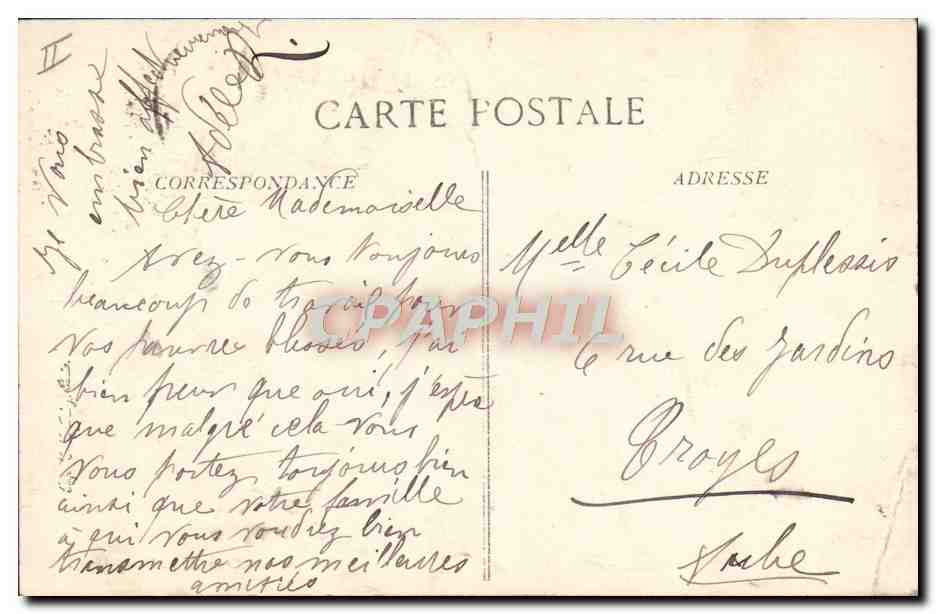 II
CARTE POSTALE
CORRESPONDANCE
ADRESSE
Chère Mademoiselle
Avez-vous toujours
beaucoup de travail pour
vos pauvres blessés, j'ai
bien peur que oui, j'espère
que malgré cela vous
vous portez toujours bien
ainsi que votre famille
à qui vous voudrez bien
transmettre nos meilleures
amitiés
Je vous
embrasse
bien affectueusement
Melle Cécile Duplessis
6 rue des Jardins
Troyes
Aube
CPAPHIL